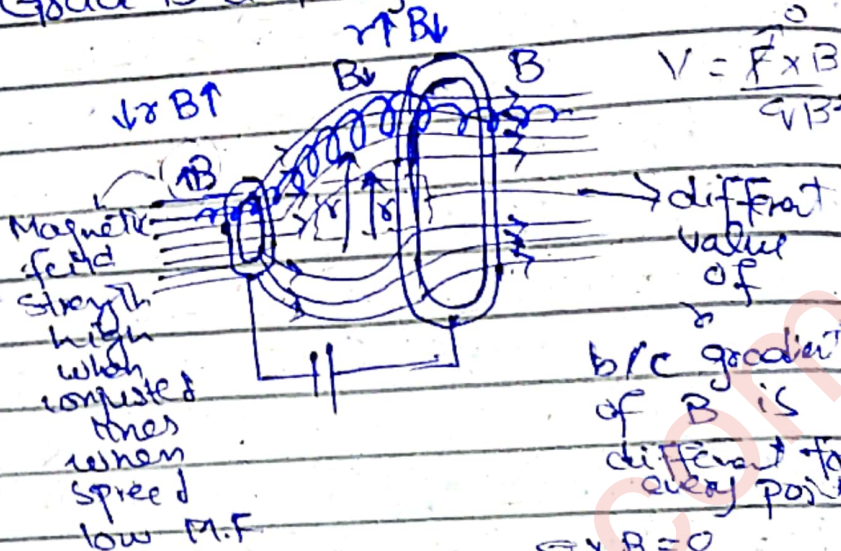 r↑ B↓
↓r B↑
B↓
B
V = F × B
qVB²
0
↑B
r
r
Magnetic
feild
strength
high
when
lines
when
spreed
low M.F
→ different
value
of
r
b/c gradient
of B is
different fo
every poi
× B = 0
com